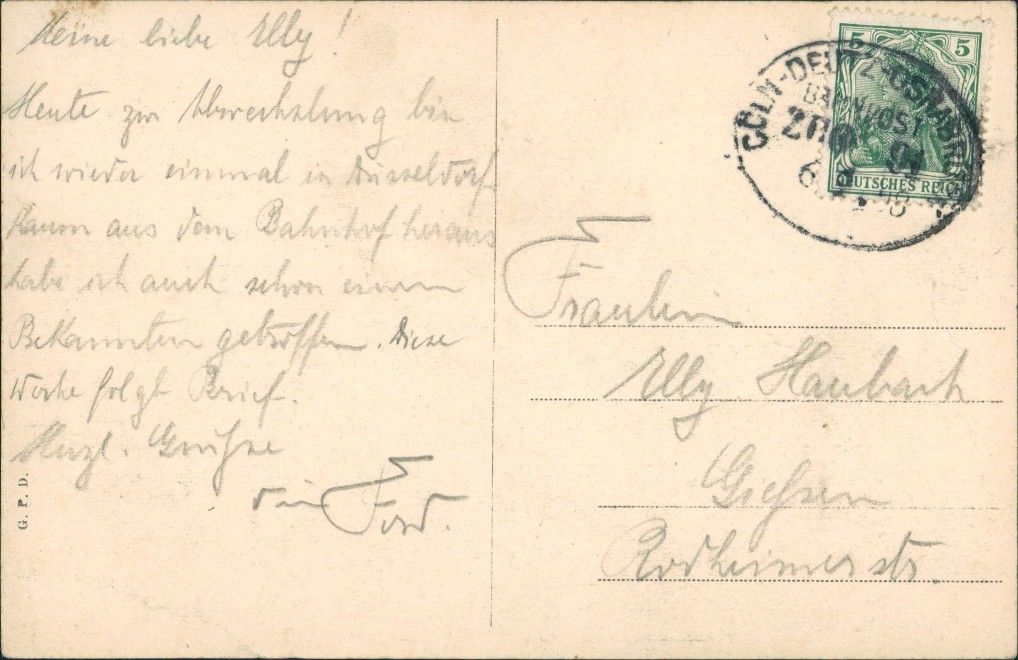 Meine liebe Elly!
Heute zur Abwechslung bin
ich wieder einmal in Düsseldorf.
Kaum aus dem Bahnhof heraus
habe ich auch schon einen
Bekannten getroffen. Diese
Woche folgt Brief.
Herzl. Grüße
dein Ferd.
G. P. D.
CÖLN-DEUTZ-OSNABRÜCK
BAHNPOST
ZUG
5 5
DEUTSCHES REICH
Fräulein
Elly Haubach
Gießen
Rodheimerstr.